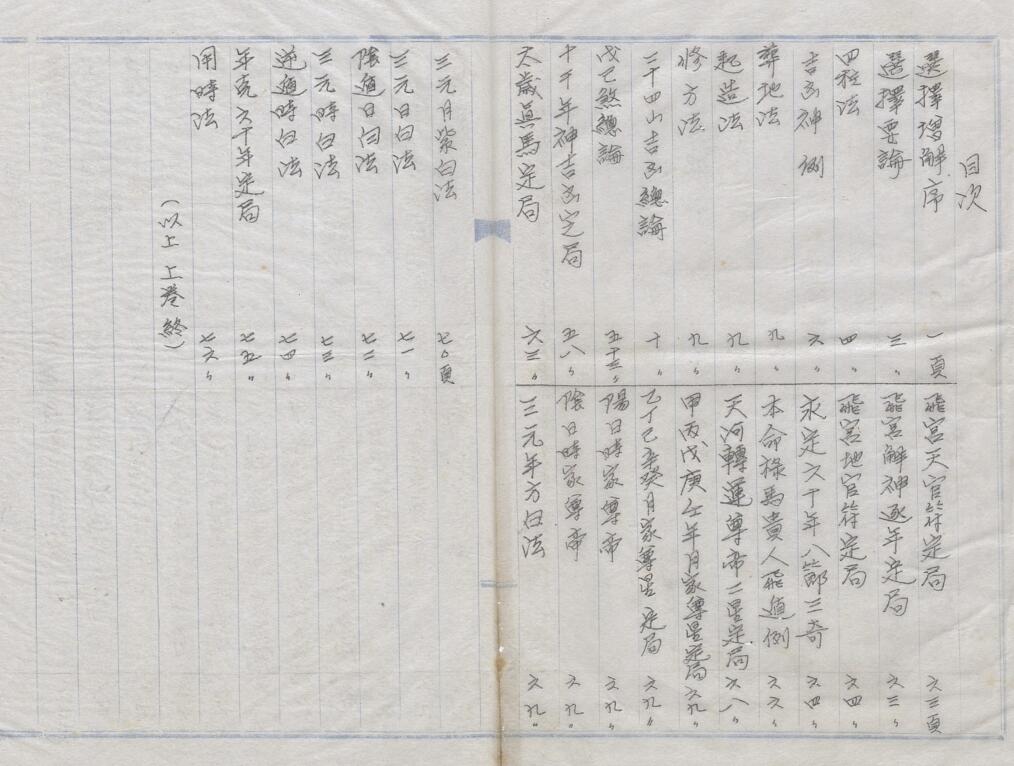 目次
選擇增解序 一頁
選擇要論 三〃
四柱法 四〃
吉凶神例 六〃
葬地法 九〃
起造法 九〃
修方法 九〃
二十四山吉凶總論 十〃
戊己煞總論 五十三〃
十干年神吉凶定局 五八〃
太歲眞馬定局 六三〃
飛宮天官符定局 六三頁
飛宮解神逐年定局 六三〃
飛宮地官符定局 六四〃
永定六十年八節三奇 六四〃
本命祿馬貴人飛遁例 六六〃
天河轉運尊帝二星定局 六八〃
甲丙戊庚壬年月家尊星定局 六九〃
乙丁己辛癸月家尊星定局 六九〃
陽日時家尊帝 六九〃
陰日時家尊帝 六九〃
三元年方白法 六九〃
三元月紫白法 七〇頁
三元日白法 七一〃
陰遁日白法 七二〃
三元時白法 七三〃
逆遁時白法 七四〃
年克六十年定局 七五〃
用時法 七六〃
(以上 上卷終)